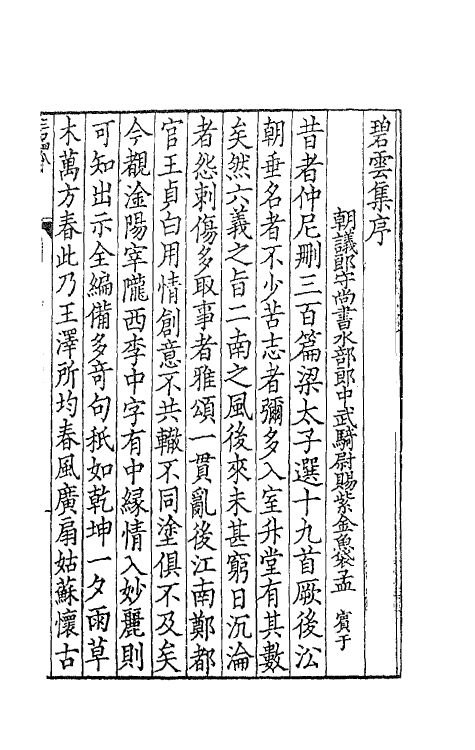 碧雲集序
朝議郎守尚書水部郎中武騎尉賜紫金魚袋孟　賓于
昔者仲尼刪三百篇梁太子選十九首厥後㳂
朝垂名者不少苦志者彌多入室升堂有其數
矣然六義之旨二南之風後來未甚窮日沉淪
者怨刺傷多取事者雅頌一貫亂後江南鄭都
官王貞白用情創意不共轍不同塗俱不及矣
今覩淦陽宰隴西李中字有中緣情入妙麗則
可知出示全編備多竒句秖如乾坤一夕雨草
木萬方春此乃王澤所均春風廣扇姑蘇懷古